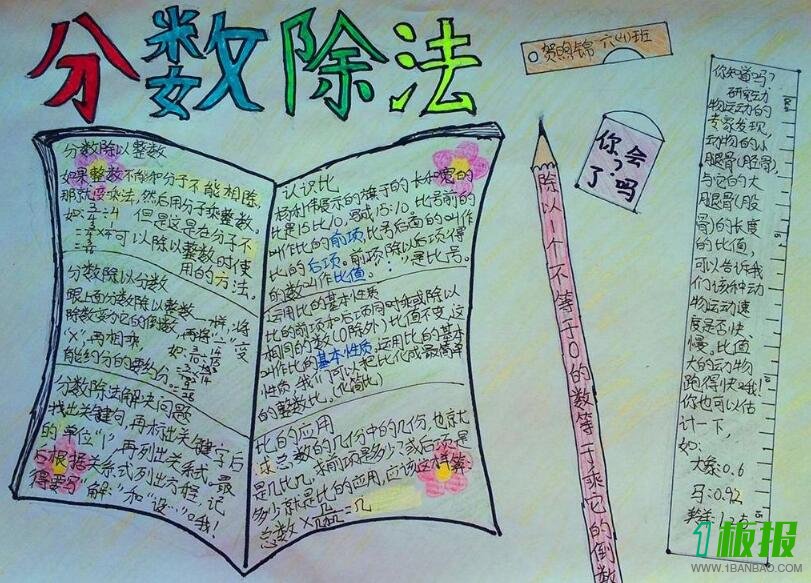 分数除法
贺
锦 六(4)班
分数除以整数
如果整数不能和分子不能相除,
那就变乘法,然后用分子乘整数。
如: 3/4÷4 但是这是在分子不
可以除以整数时使
用的方法。
分数除以分数
跟上面分数除以整数一样,将
除数变为它的倒数,再将“÷”变
“×”,再相乘
能约分的要约分
分数除法解决问题
找出关键句,再标出关键字后
的“单位‘1’”,再列出关系式。最
后根据关系式列出方程,记
得要写“解:”和“设…”哦!
认识比
杨利伟展示的旗子的长和宽的
比是15比10,写成15:10,比号前的
叫作比的前项,比号后面的叫作
比的后项。前项除以后项得
的数叫作比值。“:”是比号。
运用比的基本性质
比的前项和后项同时乘或除以
相同的数(0除外)比值不变,这
叫作比的基本性质。运用比的基本
性质,我们可以把比化成最简单
的整数比。(化简比)
比的应用
求总数的几份中的几份,也就
是几比几,求前项是多少?或后项是
多少就是比的应用,应该这样算:
总数×
除以一个不等于0的数等于乘它的倒数
你会
了吗
?
你知道吗?
研究动
物运动的
专家发现,
动物的小
腿骨(胫骨)
与它的大
腿骨(股
骨)的长度
的比值,
可以告诉我
们该种动
物运动速
度是否快
慢。比值
大的动物
跑得快哦!
你也可以估
计一下,
如:
大象:0.6
马:0.92
1板报
WWW.1BANBAO.COM